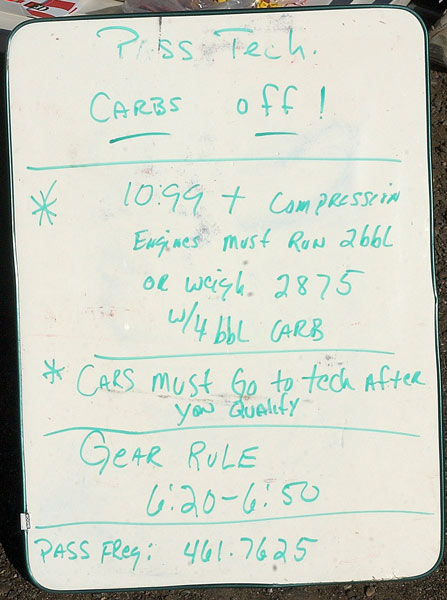 Pass Tech.
CARBS off!
* 10:99 + COMPRESSION
ENGINES MUST RUN 2bbL
OR weigh 2875
w/4 bbL CARB
* CARS MUST Go to tech AfteR
you QUALIFY
GEAR RULE
6:20-6:50
PASS FReq: 461.7625